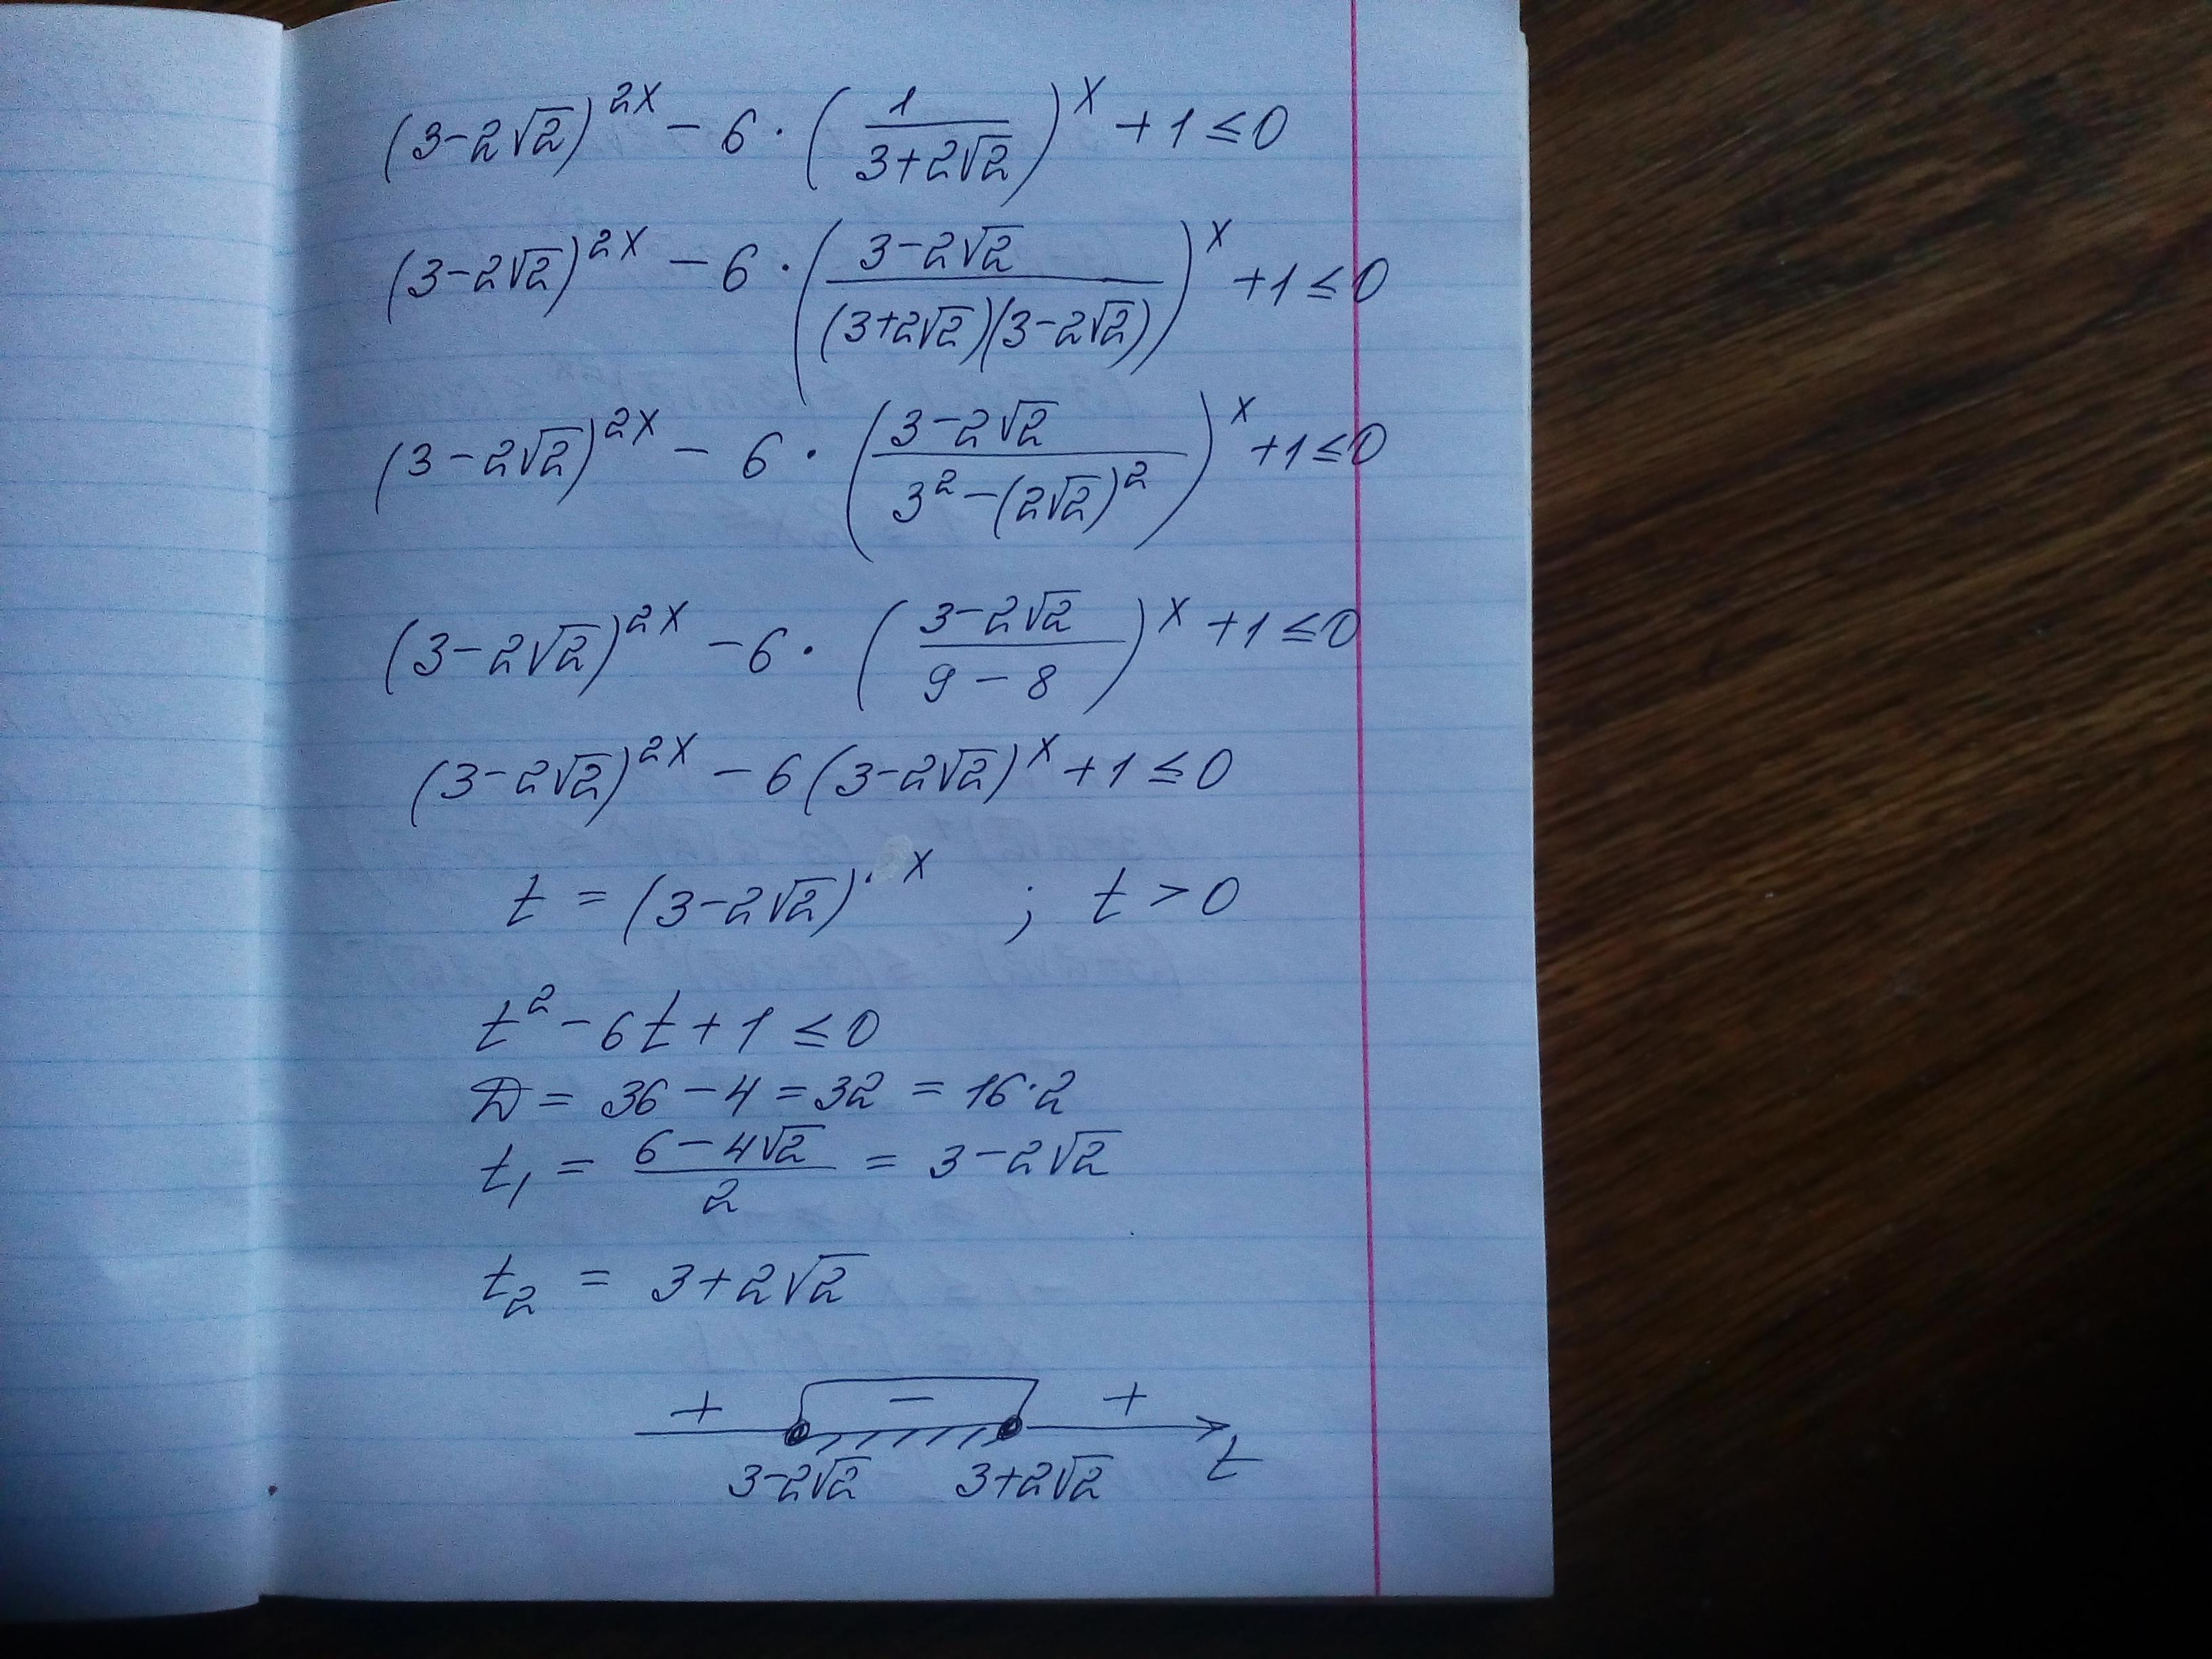 (3-2√2)^2x - 6 · (1/(3+2√2))^x + 1 ≤ 0
(3-2√2)^2x - 6 · ((3-2√2)/((3+2√2)(3-2√2)))^x + 1 ≤ 0
(3-2√2)^2x - 6 · ((3-2√2)/(3²-(2√2)²))^x + 1 ≤ 0
(3-2√2)^2x - 6 · ((3-2√2)/(9-8))^x + 1 ≤ 0
(3-2√2)^2x - 6(3-2√2)^x + 1 ≤ 0
t = (3-2√2)^x ; t > 0
t² - 6t + 1 ≤ 0
D = 36 - 4 = 32 = 16·2
t₁ = (6-4√2)/2 = 3-2√2
t₂ = 3+2√2
+ - +
3-2√2 3+2√2 t